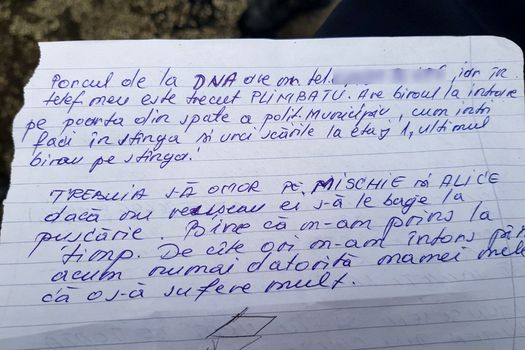 Porcul de la DNA are un tel. , iar în
telef meu este trecut PLIMBATU. Are biroul la intrare
pe poarta din spate a polit. Municipiu, cum intri
faci în stînga și urci scările la etaj 1, ultimul
birou pe stînga.
TREBUIA SĂ OMOR PE MISCHIE și ALICE
dacă nu reușeau ei să le bage la
pușcărie. Bine că m-am prins la
timp. De cîte ori m-am întors pân
acum numai datorită mamei mele
că o să sufere mult.